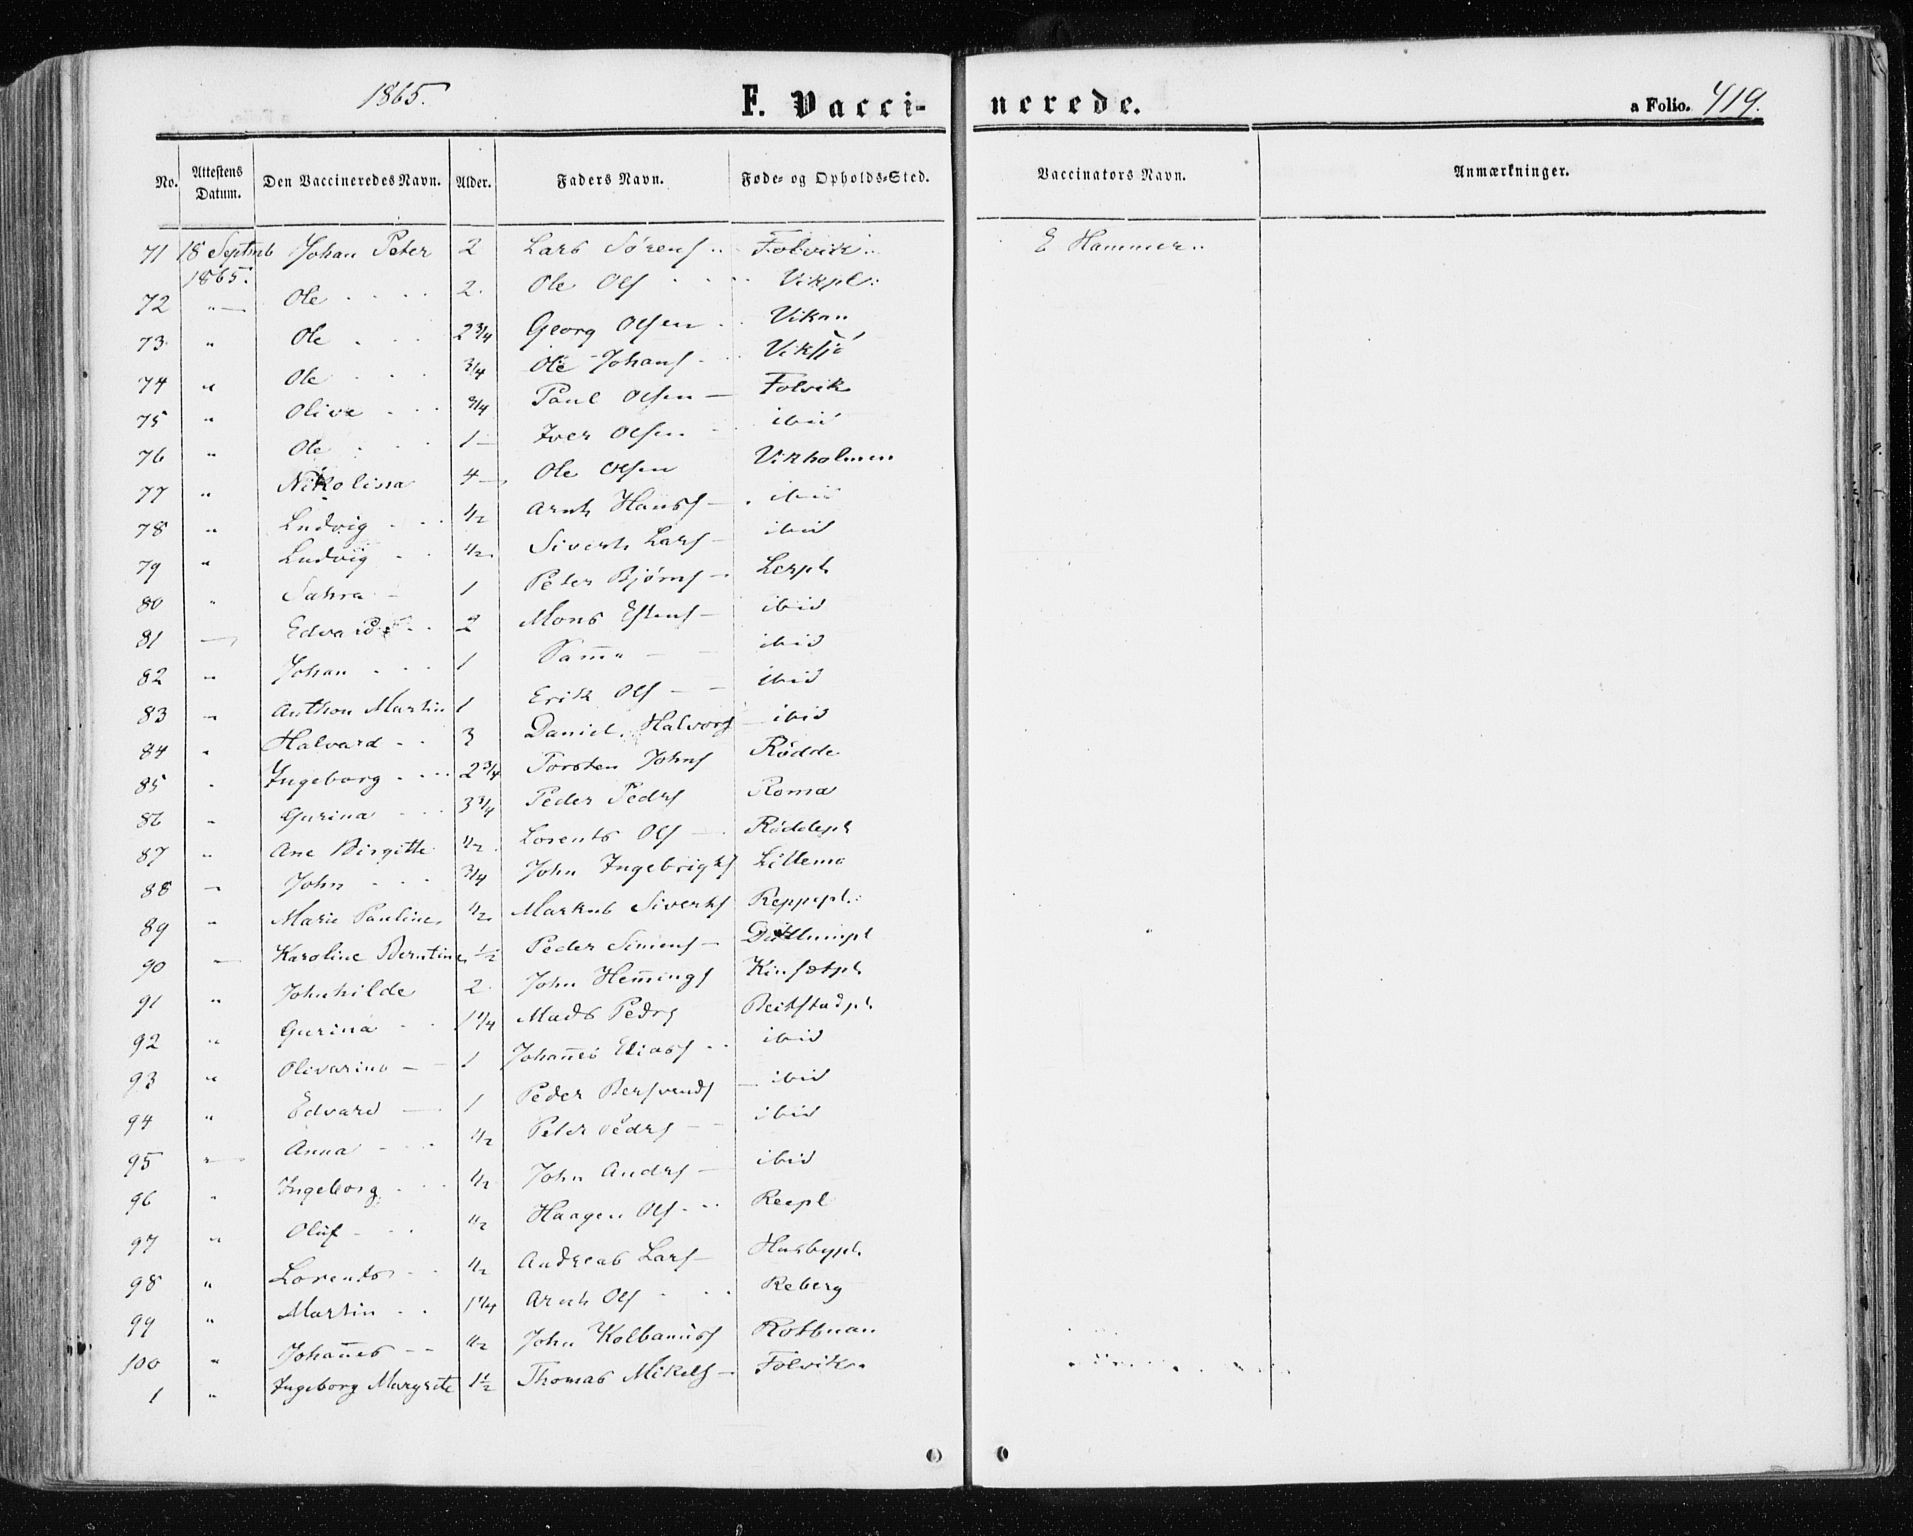 1865.
F. Vaccinerede.
a Folio. 419.
No. | Attestens Datum. | Den Vaccineredes Navn. | Alder. | Faders Navn. | Føde- og Opholds-Sted. | Vaccinators Navn. | Anmærkninger.
71 | 18 Septmb 1865. | Johan Peter | 2 | Lars Sørens | Folvik | E Hammer
72 | " | Ole | 2 | Ole Ols | Vikpl:
73 | " | Ole | 2 3/4 | Georg Olsen | Vikan
74 | " | Ole | 3/4 | Ole Johans
75 | " | Olive | 3/4 | Paul Olsen | Folvik
76 | " | Ole | 1 | Iver Olsen | ibid
77 | " | Nikolina | 4 | Ole Olsen | Vikholmen
78 | " | Ludvig | 1/2 | Arnt Hans | ibid
79 | " | Ludvig | 1/2 | Sivert Lars | ibid
80 | " | Sahra | 1 | Peter Bjørns | Lerpl
81 | " | Edvard | 2 | Mons Estens | ibid
82 | " | Johan | 1 | Samme | ibid
83 | " | Anthon Martin | 1 | Erik Ols | ibid
84 | " | Halvard | 3 | Daniel Halvors | ibid
85 | " | Ingeborg | 2 3/4 | Torsten Johns | Rødde
86 | " | Gurina | 3 3/4 | Peder Peders | Roma
87 | " | Ane Birgitte | 1/2 | Lorents Ols | Røddepl
88 | " | John | 3/4 | John Ingebrigts | Lillemo
89 | " | Marie Pauline | 1/2 | Markus Siverts | Reppepl:
90 | " | Karoline Berntine | 1/2 | Peder Simens
91 | " | Johnhilde | 2 | John Hem̄ings | Kinsetpl
92 | " | Gurina | 1 1/4 | Mads Pedrs | Reitstadpl
93 | " | Olivarina | 1 | Johan̄es Elias | ibid
94 | " | Edvard | 1 | Peder Bersvends | ibid
95 | " | Anna | 1/2 | Peter Pedrs | ibid
96 | " | Ingeborg | 1/2 | John Andrs | ibid
97 | " | Oluf | 1/2 | Haagen Ols | Reepl
98 | " | Lorents | 1/2 | Andreas Lars | Husbypl.
99 | " | Martin | 1 1/4 | Arnt Ols | Reberg
100 | " | Johan̄es | 1/2 | John Kolbanus
1 | " | Ingeborg Margrete | 1 1/2 | Thomas Mikels | Folvik